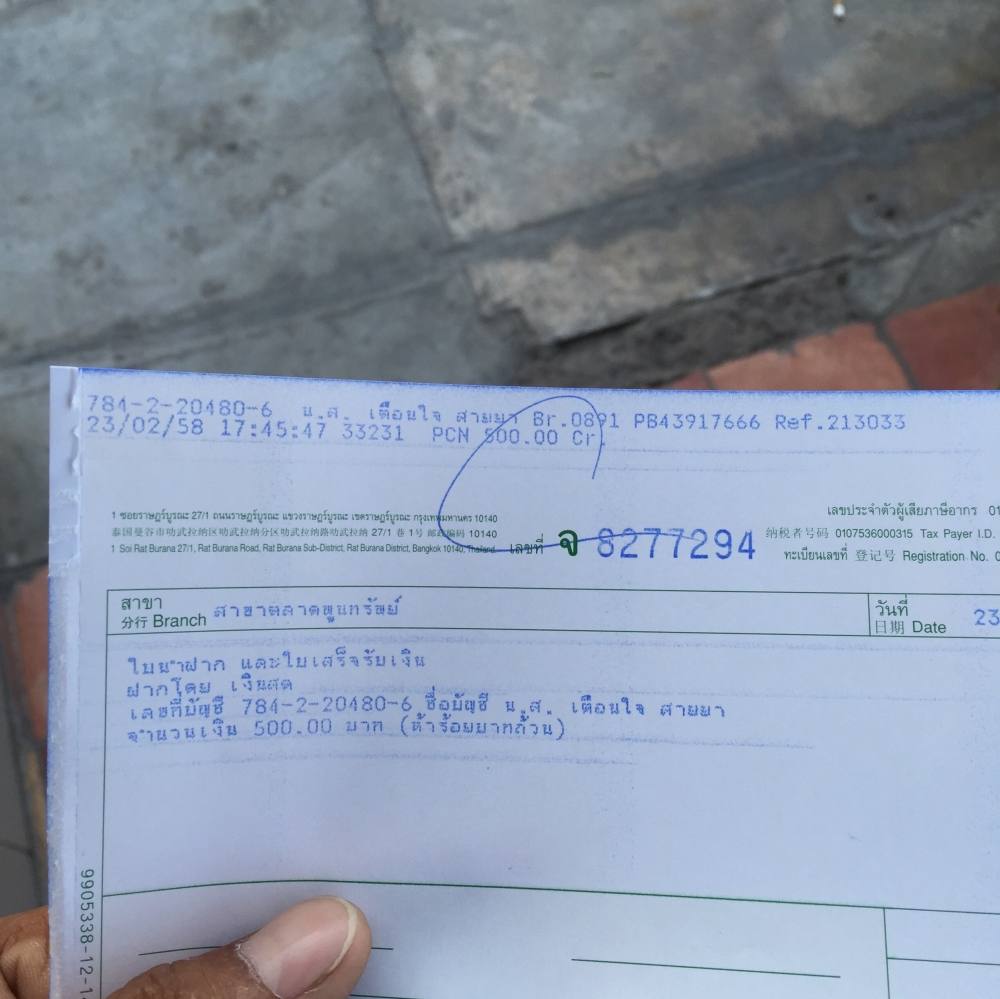 784-2-20480-6 น.ส. เตือนใจ สายยา Br.0891 PB43917666 Ref.213033
23/02/58 17:45:47 33231 PCN 500.00 Cr
1 ซอยราษฎร์บูรณะ 27/1 ถนนราษฎร์บูรณะ แขวงราษฎร์บูรณะ เขตราษฎร์บูรณะ กรุงเทพมหานคร 10140
泰国曼谷市叻武拉纳区叻武拉纳分区叻武拉纳路叻武拉纳 27/1 巷 1号 邮政编码 10140
1 Soi Rat Burana 27/1, Rat Burana Road, Rat Burana Sub-District, Rat Burana District, Bangkok 10140, Thailand.
เลขที่ จ 8277294
เลขประจำตัวผู้เสียภาษีอากร 01
纳税者号码 0107536000315 Tax Payer I.D.
ทะเบียนเลขที่ 登记号 Registration No. 0
สาขา
分行 Branch สาขาตลาดพูนทรัพย์
วันที่
日期 Date 23
ใบนำฝาก และใบเสร็จรับเงิน
ฝากโดย เงินสด
เลขที่บัญชี 784-2-20480-6 ชื่อบัญชี น.ส. เตือนใจ สายยา
จำนวนเงิน 500.00 บาท (ห้าร้อยบาทถ้วน)
9905338-12-1